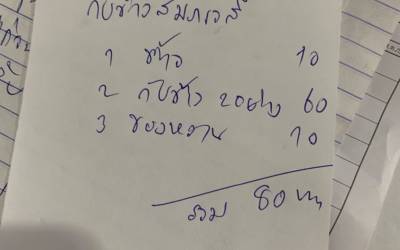 กับข้าวสมภารวลี
1 ข้าว 10
2 กับข้าว 2อย่าง 60
3 ของหวาน 10
รวม 80 บาท